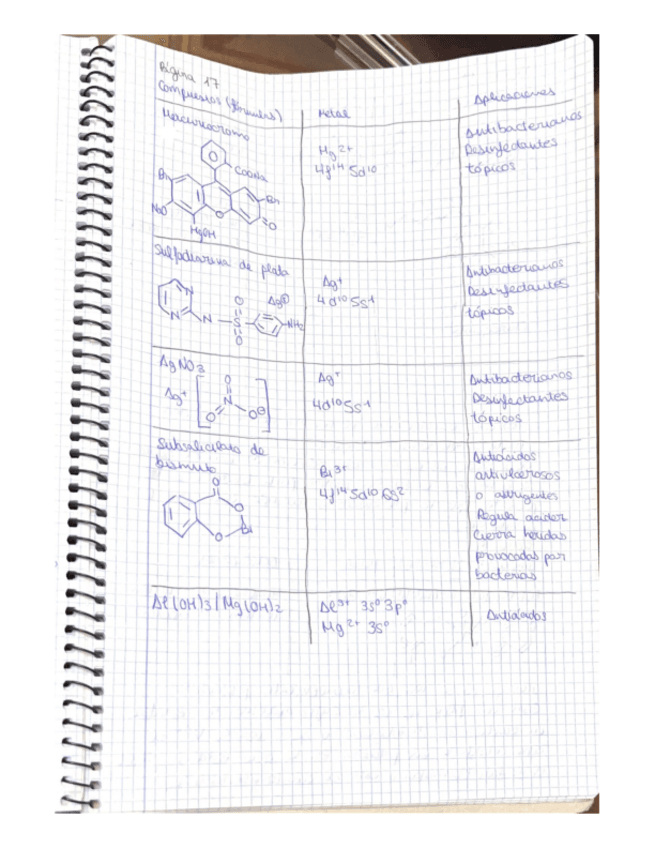 Página 17
Compuestos (fórmulas) Metal Aplicaciones
Mercuriocromo
Hg2+
4f14 5d10
Antibacterianos
Desinfectantes
tópicos
COONa
Br
Br
NaO
O
O
HgOH
Sulfadiazina de plata
Ag+
4d10 5s1
Antibacterianos
Desinfectantes
tópicos
N
N
N
O
S
O
Ag⊕
NH2
AgNO3
Ag+
4d10 5s1
Antibacterianos
Desinfectantes
tópicos
Ag+
O
N
O
O⊖
Subsalicilato de
bismuto
Bi3+
4f14 5d10 6s2
Antiácidos
antiulcerosos
o astrigentes
Regula acidez
Cierra heridas
provocadas por
bacterias
O
O
Bi
O
Al(OH)3/Mg(OH)2
Al3+ 3s0 3p0
Mg2+ 3s0
Antiácidos